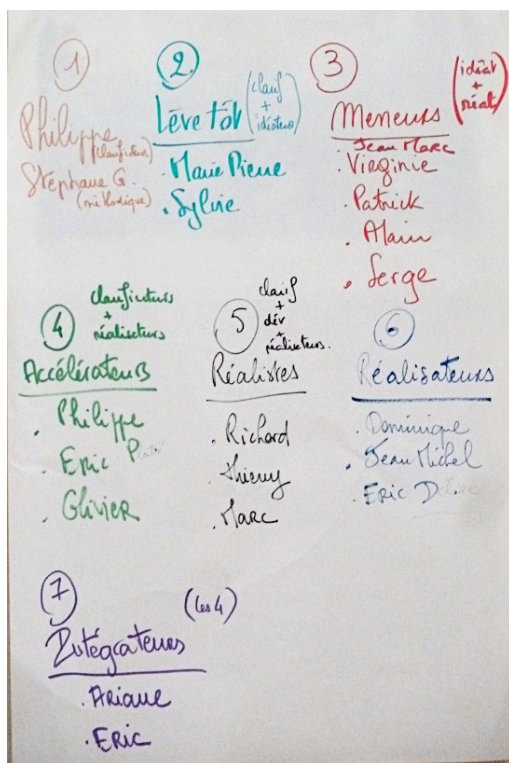 1
Philippe
(clarificateur)
Stephane G.
(méthodique)
2
Lève tôt
(clarif
+
idéateurs)
. Marie Pierre
. Sylvie
3
(idéat
+
réalis)
Meneurs
. Jean Marc
. Virginie
. Patrick
. Alain
. Serge
4
clarificateurs
+
réalisateurs
Accélérateurs
. Philippe
. Eric
. Olivier
5
clarif
+
dév
+
réalisateurs.
Réalistes
. Richard
. Thierry
. Marc
6
Réalisateurs
. Dominique
. Jean Michel
. Eric D.
7
(les 4)
Intégrateurs
. Ariane
. Eric